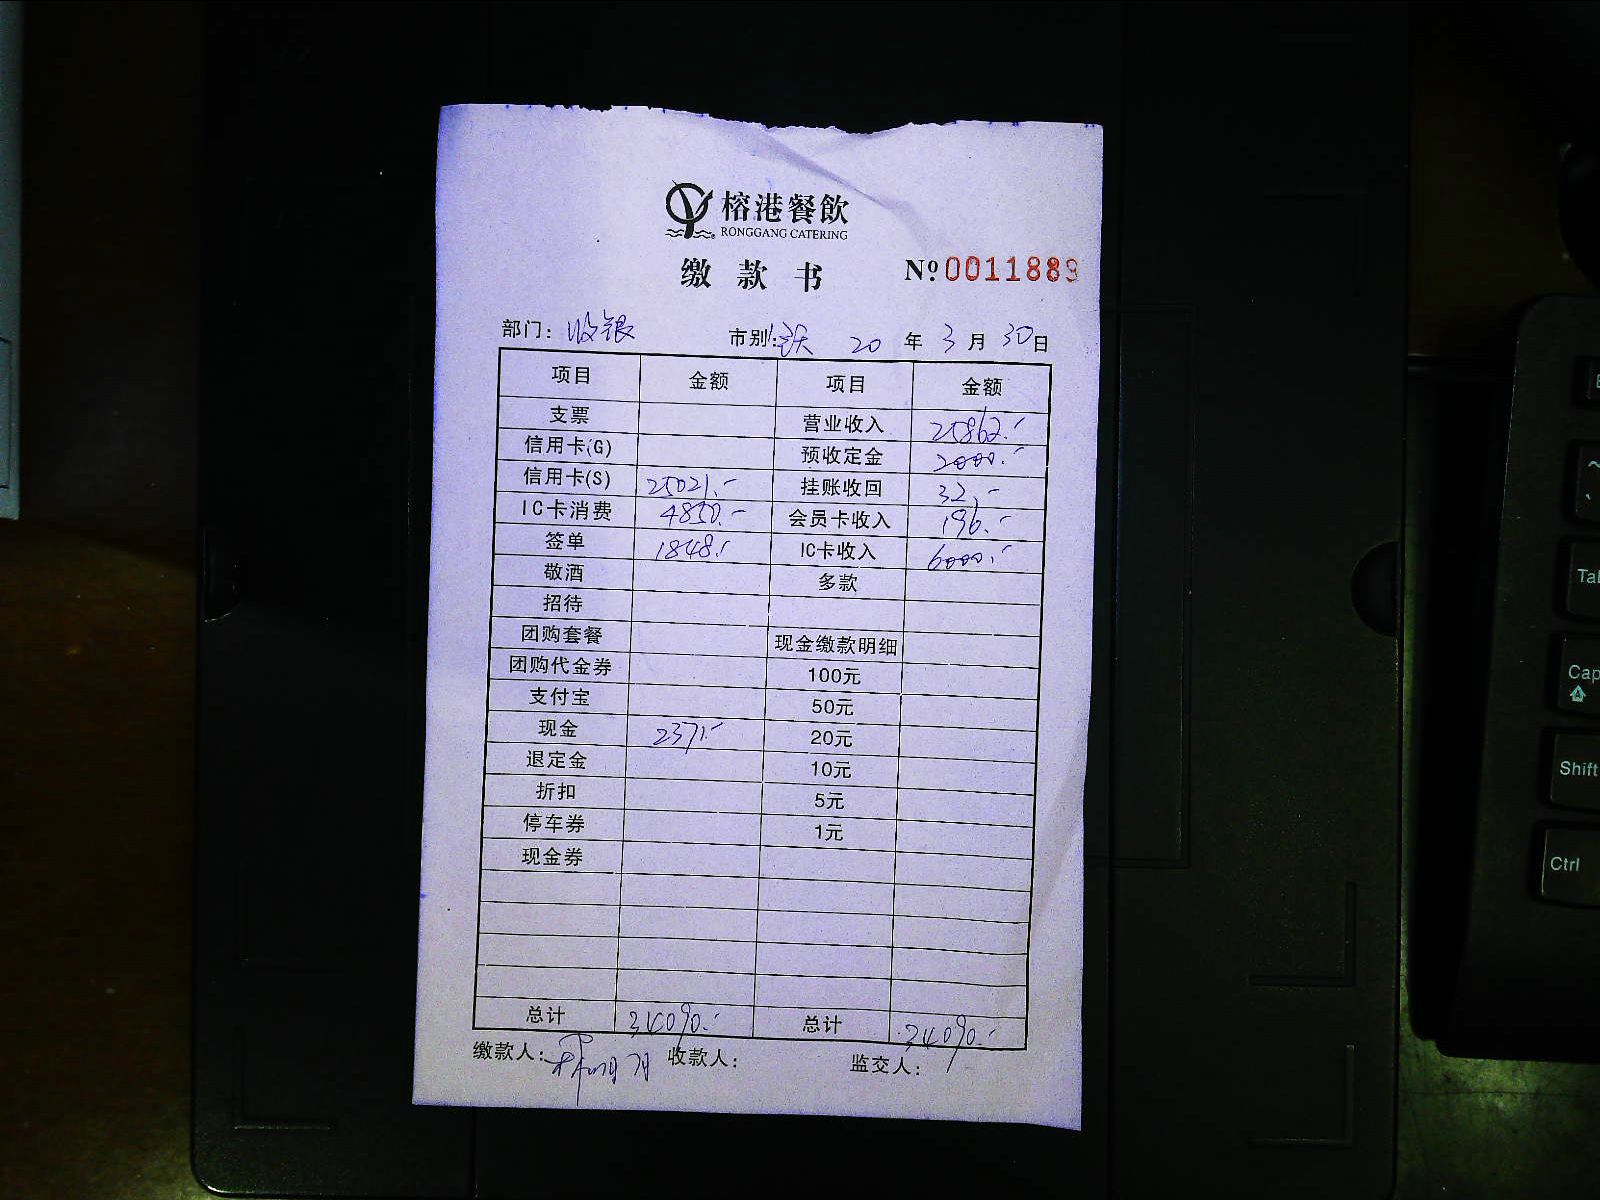 榕港餐飲
RONGGANG CATERING
缴款书 №0011889
部门：收银 市别： 20年3月30日
项目 金额 项目 金额
支票 营业收入 25862.-
信用卡(G) 预收定金 2000.-
信用卡(S) 25021.- 挂账收回 32.-
IC卡消费 4850.- 会员卡收入 196.-
签单 1848.- IC卡收入 6000.-
敬酒 多款
招待
团购套餐 现金缴款明细
团购代金券 100元
支付宝 50元
现金 2371.- 20元
退定金 10元
折扣 5元
停车券 1元
现金券
总计 34090.- 总计 34090.-
缴款人： 收款人： 监交人：
Tab
Cap
Shift
Ctrl